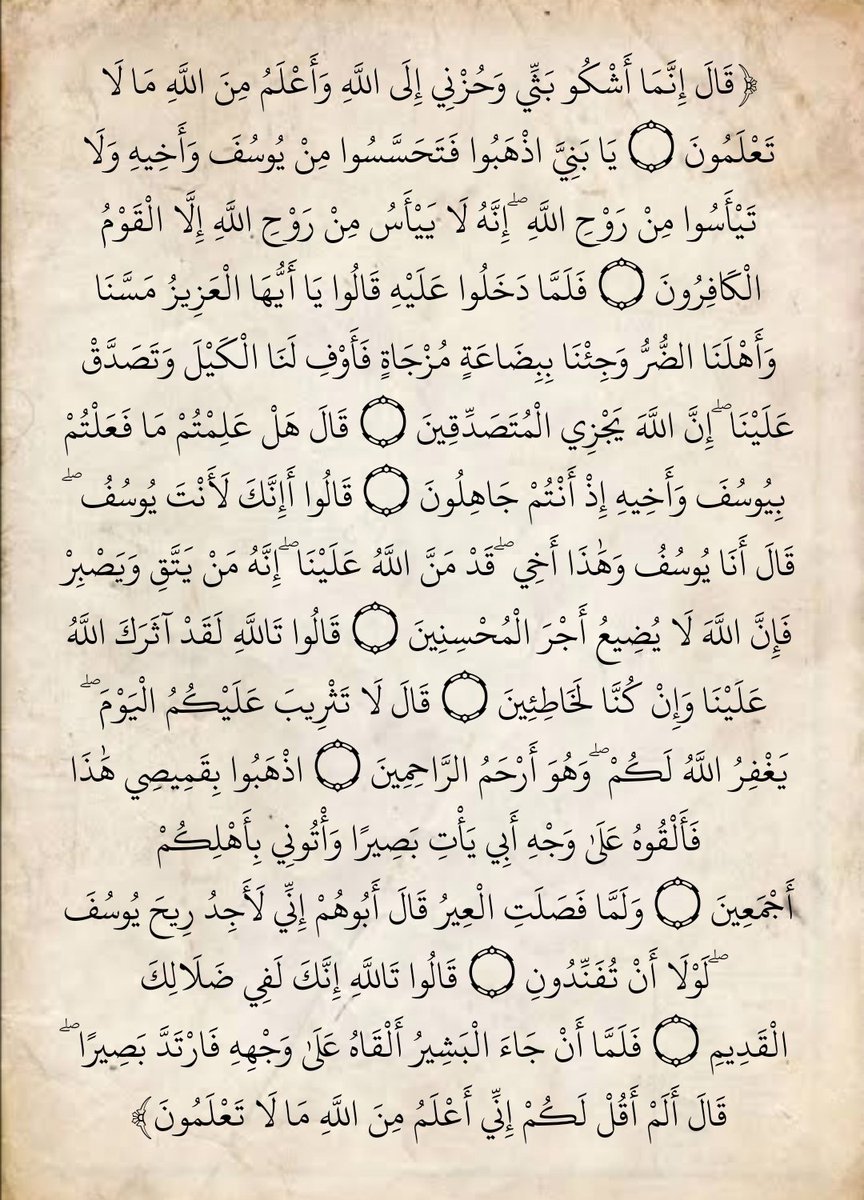 ﴿قَالَ إِنَّمَا أَشْكُو بَثِّي وَحُزْنِي إِلَى اللَّهِ وَأَعْلَمُ مِنَ اللَّهِ مَا لَا
تَعْلَمُونَ ۝ يَا بَنِيَّ اذْهَبُوا فَتَحَسَّسُوا مِنْ يُوسُفَ وَأَخِيهِ وَلَا
تَيْأَسُوا مِنْ رَوْحِ اللَّهِ ۖ إِنَّهُ لَا يَيْأَسُ مِنْ رَوْحِ اللَّهِ إِلَّا الْقَوْمُ
الْكَافِرُونَ ۝ فَلَمَّا دَخَلُوا عَلَيْهِ قَالُوا يَا أَيُّهَا الْعَزِيزُ مَسَّنَا
وَأَهْلَنَا الضُّرُّ وَجِئْنَا بِبِضَاعَةٍ مُزْجَاةٍ فَأَوْفِ لَنَا الْكَيْلَ وَتَصَدَّقْ
عَلَيْنَا ۖ إِنَّ اللَّهَ يَجْزِي الْمُتَصَدِّقِينَ ۝ قَالَ هَلْ عَلِمْتُمْ مَا فَعَلْتُمْ
بِيُوسُفَ وَأَخِيهِ إِذْ أَنْتُمْ جَاهِلُونَ ۝ قَالُوا أَإِنَّكَ لَأَنْتَ يُوسُفُ ۖ
قَالَ أَنَا يُوسُفُ وَهَٰذَا أَخِي ۖ قَدْ مَنَّ اللَّهُ عَلَيْنَا ۖ إِنَّهُ مَنْ يَتَّقِ وَيَصْبِرْ
فَإِنَّ اللَّهَ لَا يُضِيعُ أَجْرَ الْمُحْسِنِينَ ۝ قَالُوا تَاللَّهِ لَقَدْ آثَرَكَ اللَّهُ
عَلَيْنَا وَإِنْ كُنَّا لَخَاطِئِينَ ۝ قَالَ لَا تَثْرِيبَ عَلَيْكُمُ الْيَوْمَ ۖ
يَغْفِرُ اللَّهُ لَكُمْ ۖ وَهُوَ أَرْحَمُ الرَّاحِمِينَ ۝ اذْهَبُوا بِقَمِيصِي هَٰذَا
فَأَلْقُوهُ عَلَىٰ وَجْهِ أَبِي يَأْتِ بَصِيرًا وَأْتُونِي بِأَهْلِكُمْ
أَجْمَعِينَ ۝ وَلَمَّا فَصَلَتِ الْعِيرُ قَالَ أَبُوهُمْ إِنِّي لَأَجِدُ رِيحَ يُوسُفَ
ۖ لَوْلَا أَنْ تُفَنِّدُونِ ۝ قَالُوا تَاللَّهِ إِنَّكَ لَفِي ضَلَالِكَ
الْقَدِيمِ ۝ فَلَمَّا أَنْ جَاءَ الْبَشِيرُ أَلْقَاهُ عَلَىٰ وَجْهِهِ فَارْتَدَّ بَصِيرًا ۖ
قَالَ أَلَمْ أَقُلْ لَكُمْ إِنِّي أَعْلَمُ مِنَ اللَّهِ مَا لَا تَعْلَمُونَ﴾